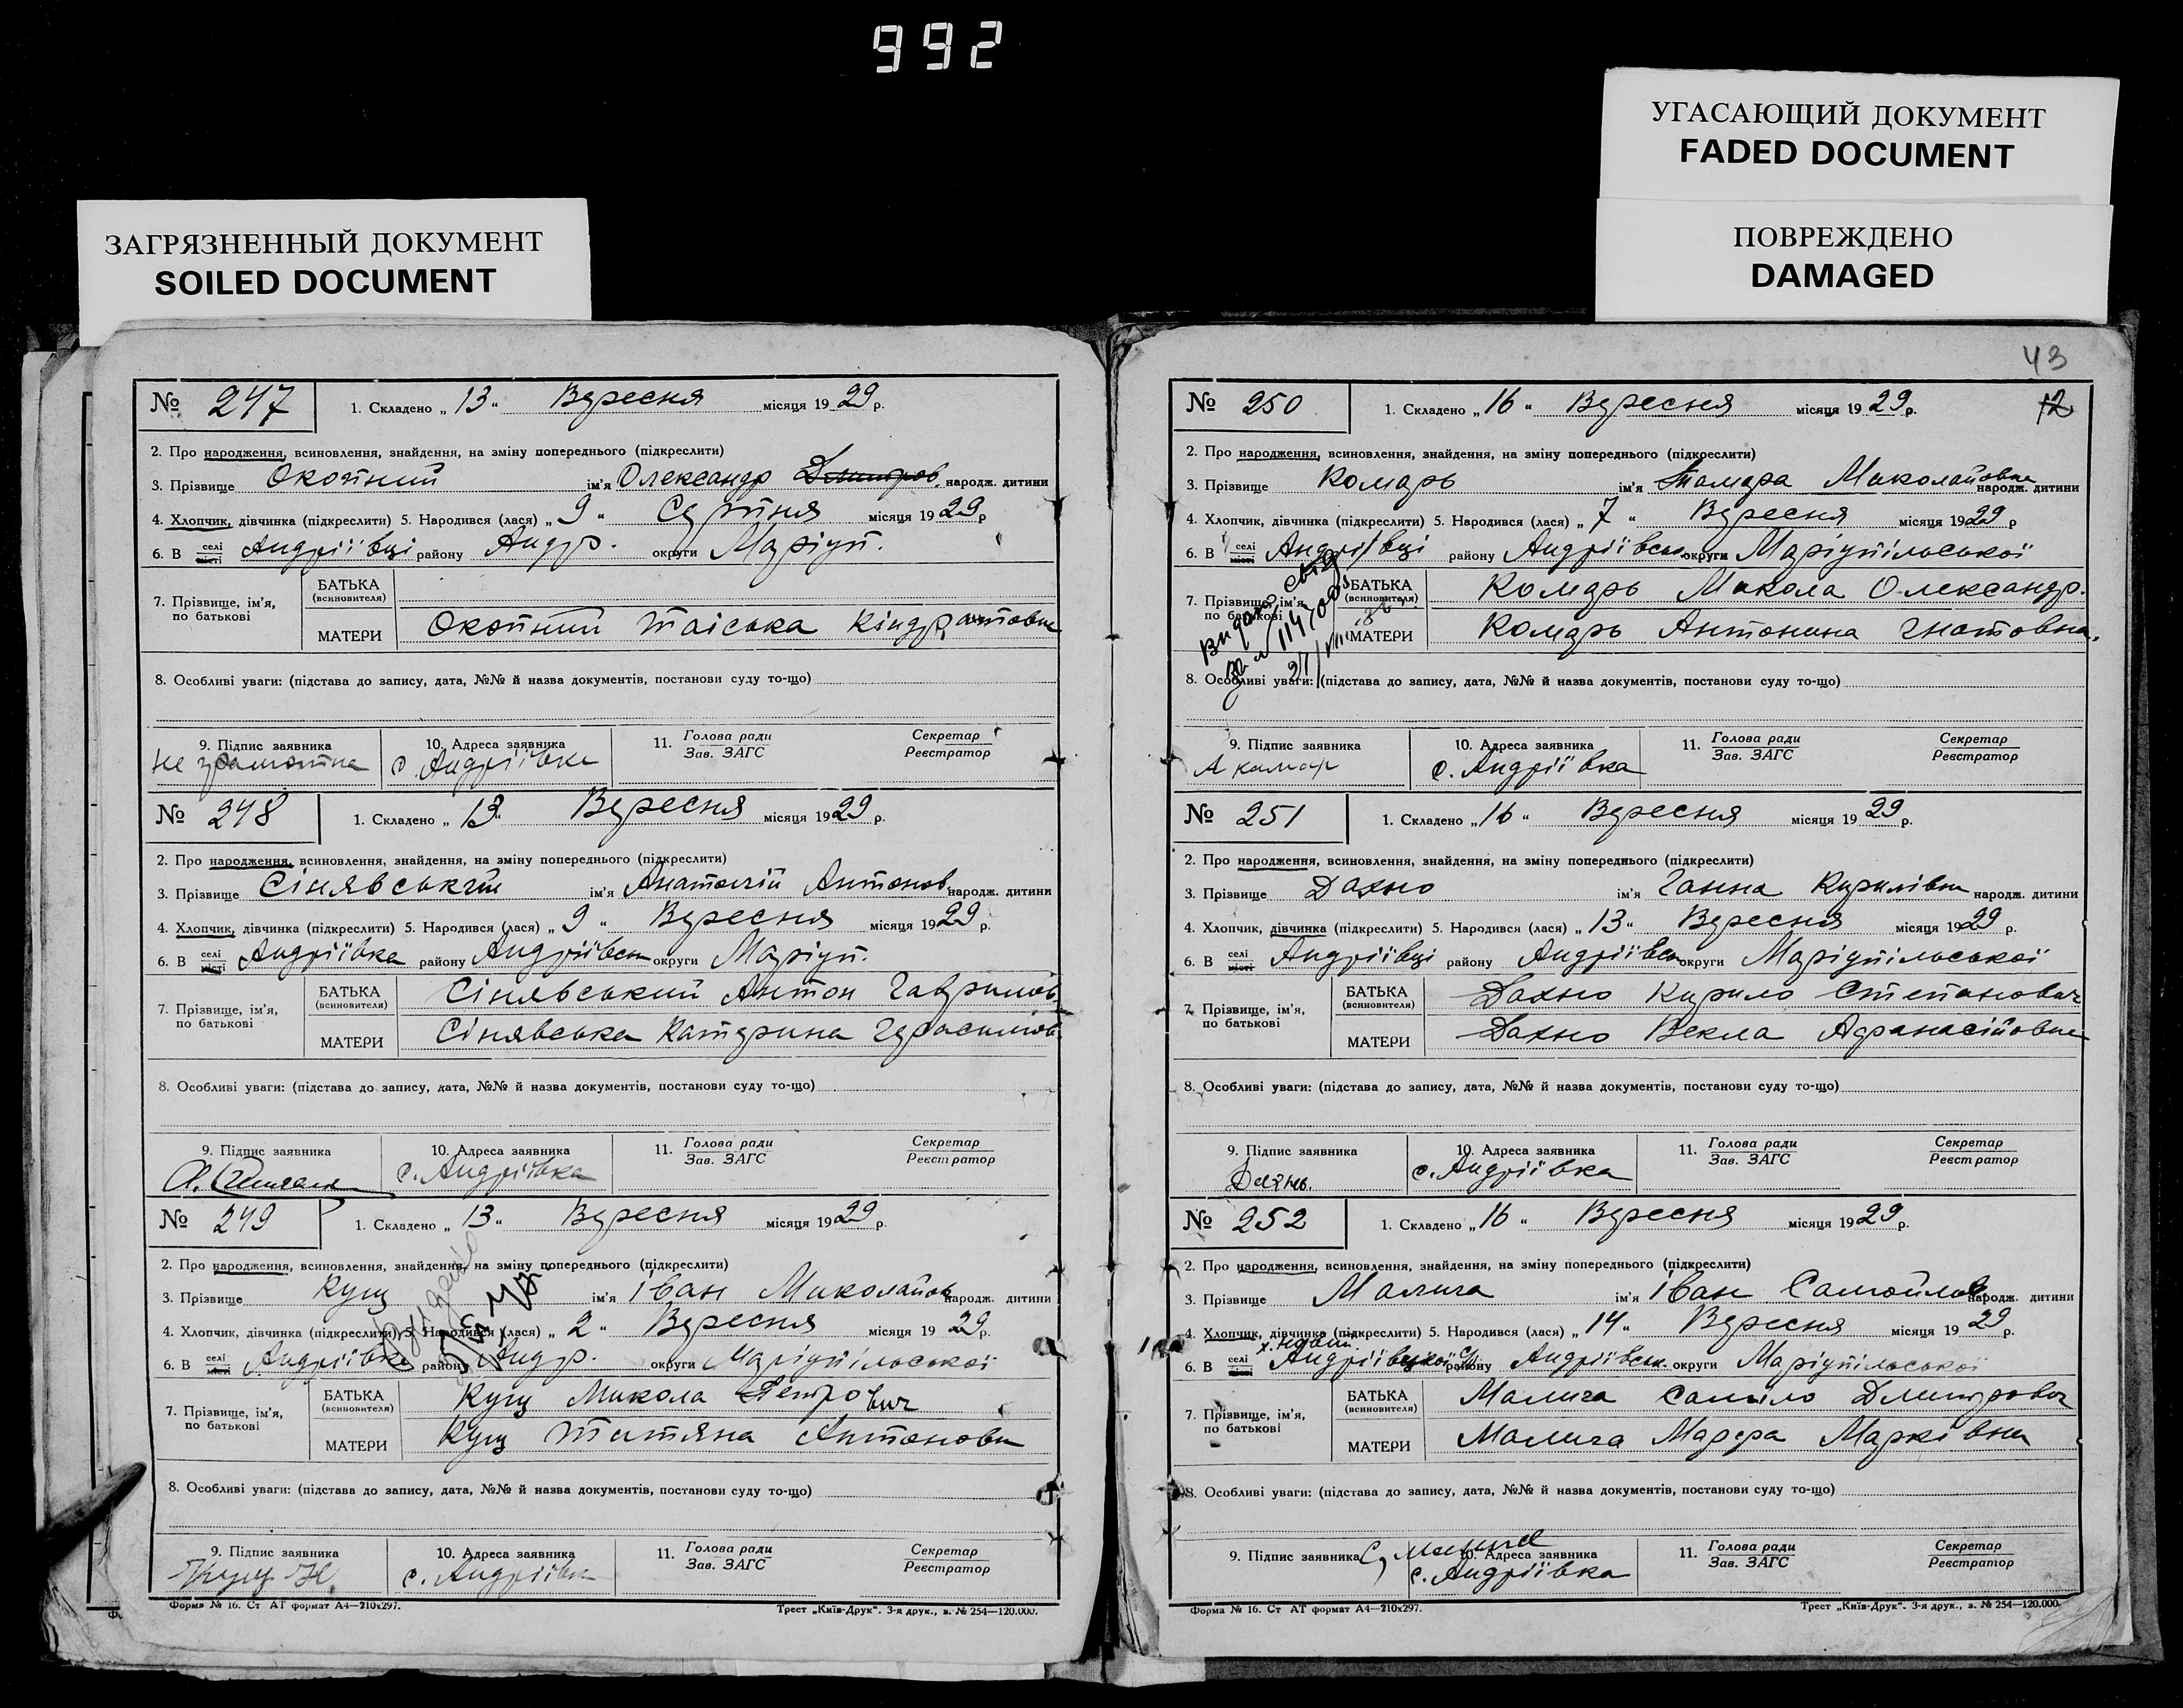 992
УГАСАЮЩИЙ ДОКУМЕНТ
FADED DOCUMENT
ПОВРЕЖДЕНО
DAMAGED
ЗАГРЯЗНЕННЫЙ ДОКУМЕНТ
SOILED DOCUMENT
№ 247 1. Складено „ 13 “ Вересня місяця 19 29 р.
2. Про народження, всиновлення, знайдення, на зміну попереднього (підкреслити)
3. Прізвище Окопний ім'я Олександр Дмитров. народж. дитини
4. Хлопчик, дівчинка (підкреслити) 5. Народився (лася) „ 9 “ Серпня місяця 19 29 р
6. В селі місті Андріївці району Андр. округи Маріуп.
7. Прізвище, ім'я, по батькові
БАТЬКА (всиновителя)
МАТЕРИ Окопний Таіська Кіндратовна
8. Особливі уваги: (підстава до запису, дата, №№ й назва документів, постанови суду то-що)
9. Підпис заявника 10. Адреса заявника 11. Голова ради Зав. ЗАГС Секретар Реєстратор
Не грамотна с. Андріївка
№ 248 1. Складено „ 13 “ Вересня місяця 19 29 р.
2. Про народження, всиновлення, знайдення, на зміну попереднього (підкреслити)
3. Прізвище Сінявський ім'я Анатолій Антонов. народж. дитини
4. Хлопчик, дівчинка (підкреслити) 5. Народився (лася) „ 9 “ Вересня місяця 19 29 р.
6. В селі місті Андріївка району Андріївськ округи Маріуп.
7. Прізвище, ім'я, по батькові
БАТЬКА (всиновителя) Сінявський Антон Гаврилов.
МАТЕРИ Сінявська Катерина Герасимов.
8. Особливі уваги: (підстава до запису, дата, №№ й назва документів, постанови суду то-що)
9. Підпис заявника 10. Адреса заявника 11. Голова ради Зав. ЗАГС Секретар Реєстратор
с. Андріївка
№ 249 1. Складено „ 13 “ Вересня місяця 19 29 р.
2. Про народження, всиновлення, знайдення, на зміну попереднього (підкреслити)
3. Прізвище Кущ ім'я Іван Миколайов народж. дитини
4. Хлопчик, дівчинка (підкреслити) 5. Народився (лася) „ 2 “ Вересня місяця 19 29 р.
6. В селі місті Андріївка району Андр. округи Маріупільської
7. Прізвище, ім'я, по батькові
БАТЬКА (всиновителя) Кущ Микола Петрович
МАТЕРИ Кущ Титяна Антоновн
8. Особливі уваги: (підстава до запису, дата, №№ й назва документів, постанови суду то-що)
9. Підпис заявника 10. Адреса заявника 11. Голова ради Зав. ЗАГС Секретар Реєстратор
Кущ Н с. Андріївк
Форма № 16. Ст АТ формат А4—210x297. Трест „Київ-Друк“. 3-я друк., з. № 254—120.000.
43
12
№ 250 1. Складено „ 16 “ Вересня місяця 19 29 р.
2. Про народження, всиновлення, знайдення, на зміну попереднього (підкреслити)
3. Прізвище Комарь ім'я Тамара Миколайовна народж. дитини
4. Хлопчик, дівчинка (підкреслити) 5. Народився (лася) „ 7 “ Вересня місяця 19 29 р
6. В селі місті Андріївці району Андріївськ округи Маріупільської
7. Прізвище, ім'я, по батькові
БАТЬКА (всиновителя) Комарь Микола Олександр.
МАТЕРИ Комарь Антонина Гнатовна.
8. Особливі уваги: (підстава до запису, дата, №№ й назва документів, постанови суду то-що)
9. Підпис заявника 10. Адреса заявника 11. Голова ради Зав. ЗАГС Секретар Реєстратор
А комар с. Андріївка
№ 251 1. Складено „ 16 “ Вересня місяця 19 29 р.
2. Про народження, всиновлення, знайдення, на зміну попереднього (підкреслити)
3. Прізвище Дахно ім'я Ганна Кирилівна народж. дитини
4. Хлопчик, дівчинка (підкреслити) 5. Народився (лася) „ 13 “ Вересня місяця 19 29 р.
6. В селі місті Андріївці району Андріївськ округи Маріупільської
7. Прізвище, ім'я, по батькові
БАТЬКА (всиновителя) Дахно Кирило Степанович
МАТЕРИ Дахно Векла Афанасійовна
8. Особливі уваги: (підстава до запису, дата, №№ й назва документів, постанови суду то-що)
9. Підпис заявника 10. Адреса заявника 11. Голова ради Зав. ЗАГС Секретар Реєстратор
Дахно. с. Андріївка
№ 252 1. Складено „ 16 “ Вересня місяця 19 29 р.
2. Про народження, всиновлення, знайдення, на зміну попереднього (підкреслити)
3. Прізвище Малига ім'я Іван Самойлов народж. дитини
4. Хлопчик, дівчинка (підкреслити) 5. Народився (лася) „ 14 “ Вересня місяця 19 29 р.
6. В селі місті Андріївської с/р району Андріївськ. округи Маріупільської
7. Прізвище, ім'я, по батькові
БАТЬКА (всиновителя) Малига Самыло Дмитрович
МАТЕРИ Малига Марфа Марківна
8. Особливі уваги: (підстава до запису, дата, №№ й назва документів, постанови суду то-що)
9. Підпис заявника 10. Адреса заявника 11. Голова ради Зав. ЗАГС Секретар Реєстратор
с. Андріївка
Форма № 16. Ст АТ формат А4—210x297. Трест „Київ-Друк“. 3-я друк., з. № 254—120.000.